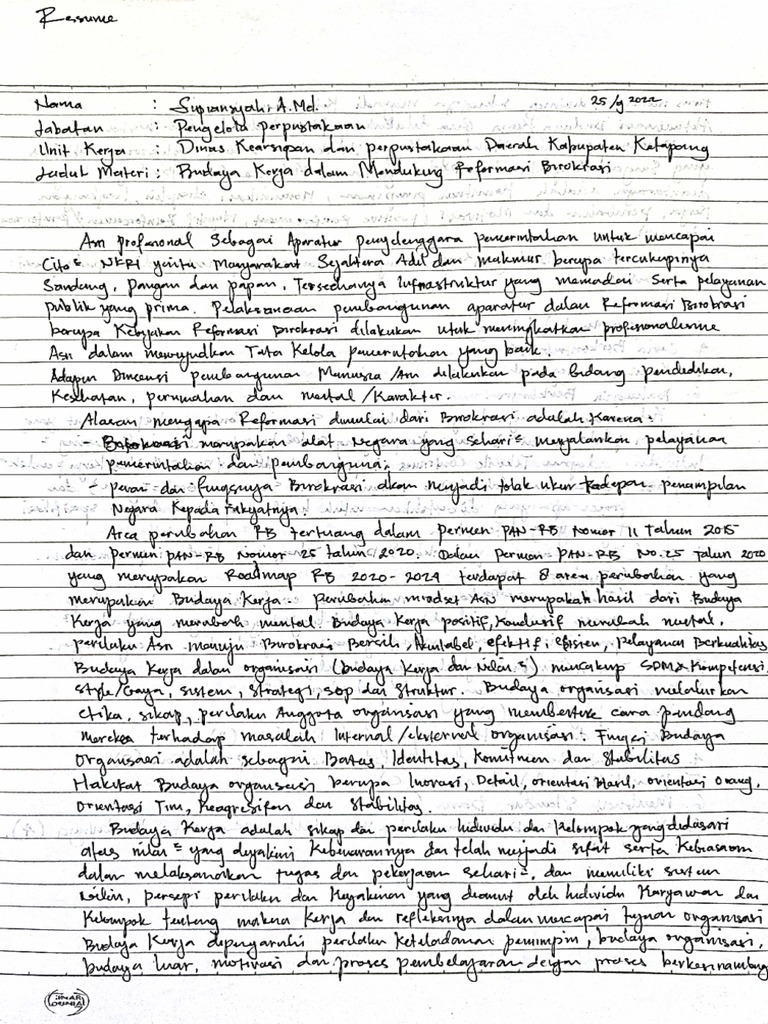 Resume
Nama : Supiansyah, A.Md. 25/9 2022
Jabatan : Pengelola Perpustakaan
Unit Kerja : Dinas Kearsipan dan perpustakaan Daerah Kabupaten Ketapang
Judul Materi : Budaya Kerja dalam Mendukung Reformasi Birokrasi
Asn profesional Sebagai Aparatur penyelenggara pemerintahan untuk mencapai
Cita² NKRI yaitu Masyarakat Sejahtera Adil dan makmur berupa tercukupinya
Sandang, pangan dan papan, Tersedianya infrastruktur yang memadai Serta pelayanan
Publik yang prima. Pelaksanaan pembangunan aparatur dalam Reformasi Birokrasi
berupa Kebijakan Reformasi Birokrasi dilakukan utuk meningkatkan profesonalisme
Asn dalam mewujudkan Tata Kelola pemerintahan yang baik.
Adapun Dimensi pembangunan Manusia/Asn dilakukan pada bidang pendidikan,
Kesehatan, perumahan dan mental/Karakter.
Alasan mengapa Reformasi dimulai dari Birokrasi adalah Karena:
- Birokrasi merupakan alat Negara yang sehari² menjalankan pelayanan
pemerintahan dan pembangunan;
- peran dan fungsinya Birokrasi akan menjadi tolak ukur penampilan
Negara Kepada rakyatnya.
Area perubahan RB tertuang dalam permen PAN-RB Nomor 11 Tahun 2015
dan permen PAN-RB Nomor 25 tahun 2020. Dalam Permen PAN-RB No.25 Tahun 2020
yang merupakan Roadmap RB 2020-2024 terdapat 8 area perubahan yang
merupakan Budaya Kerja. Perubahan mindset Asn merupakan hasil dari Budaya
Kerja yang merubah mental. Budaya Kerja positif, Kondusif merubah mental,
perilaku Asn menuju Birokrasi Bersih, Akuntabel, efektif, efisien, pelayanan Berkualitas
Budaya Kerja dalam organisasi (budaya Kerja dan Nilai²) mencakup SDM & Kompetensi,
style/Gaya, sistem, strategi, sop dan Struktur. Budaya organisasi melahirkan
etika, sikap, perilaku Anggota organisasi yang membentuk cara pandang
mereka terhadap masalah Internal/eksternal organisasi. Fungsi budaya
Organisasi adalah sebagai Batas, Identitas, Komitmen dan Stabilitas
Hakikat Budaya organisasi berupa Inovasi, Detail, orientasi Hasil, orientasi Orang,
Orientasi Tim, Keagresifan dan Stabilitas.
Budaya Kerja adalah sikap dan perilaku Individu dan Kelompok yang didasari
atas nilai² yang diyakini Kebenarannya dan telah menjadi sifat serta Kebiasaan
dalam melaksanakan tugas dan pekerjaan sehari², dan memiliki sistem
Nilai, persepsi perilaku dan Keyakinan yang dianut oleh Individu Karyawan dan
Kelompok tentang makna Kerja dan refleksinya dalam mencapai tujuan organisasi
Budaya Kerja dipengaruhi perilaku keteladanan pemimpin, budaya organisasi,
budaya luar, motivasi dan proses pembelajaran dengan proses berkesinambung
SINAR DUNIA